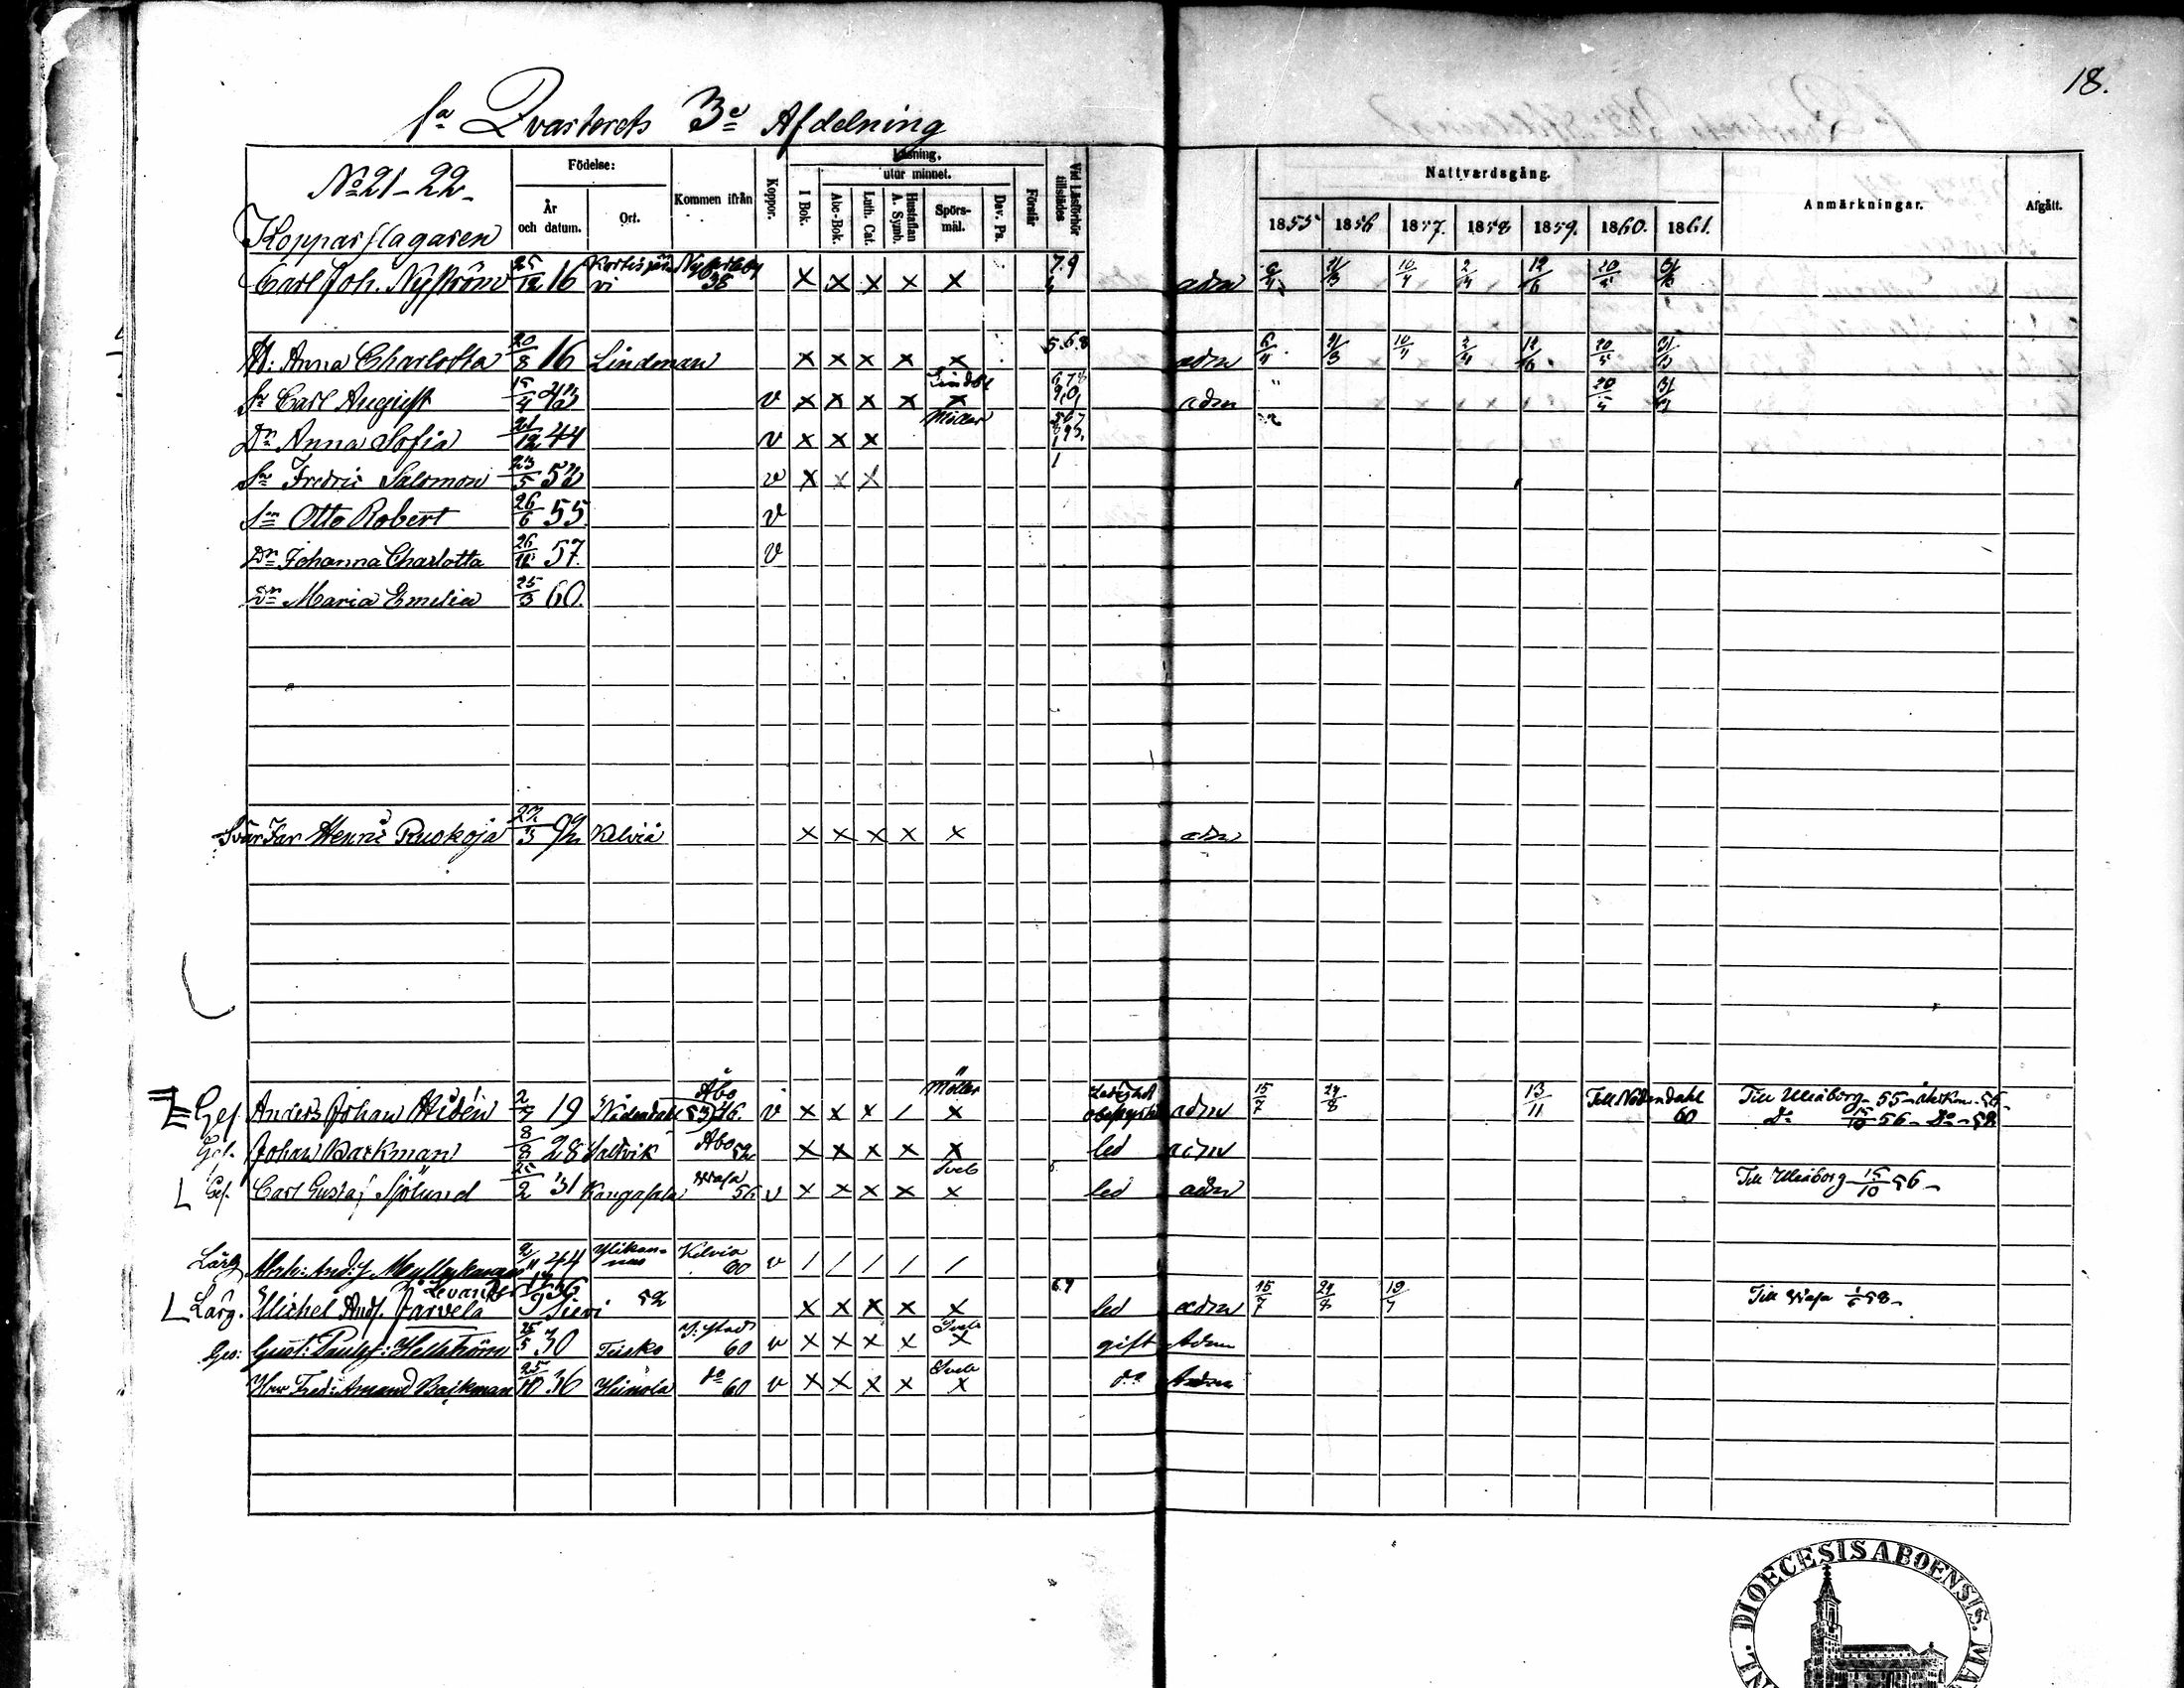 18.
1a Qvarterets 3e Afdelning
No 21-22.
Födelse: År och datum. Ort. Kommen ifrån Koppor. Läsning. I Bok. utur minnet. Abc-Bok. Luth. Cat. Hustaflan A. Symb. Spörsmål. Dav. Ps. Förstår Vid Läsförhör tillstädes Nattvardsgång. 1855 1856 1857. 1858 1859. 1860. 1861. Anmärkningar. Afgått.
Kopparslagaren
Carl Joh. Nyström 25/12 16 Nykarleby 38 x x x x x 7.9 adm 6/4 21/3 10/4 2/4 12/6 20/5 31/3
H: Anna Charlotta 20/8 16 Lindman x x x x x 5.6.8 adm 6/4 21/3 10/4 2/4 12/6 20/5 31/3
Sn Carl August 15/4 42 v x x x x x adm 20/5 31/3
Dr Anna Sofia 21/12 44 v x x x Möller
Sn Fredric Salomon 23/5 52 v x x x 1
Sn Otto Robert 26/6 55. v
Dr Johanna Charlotta 57. v
Dr Maria Emelia 25/3 60.
Svär Far Henric Ruokoja Kelviå x x x x x adm
Gef Anders Johan Widén 2/7 19 Nådendahl Åbo 53) 46. v x x x / x Möller adm 15/7 24/8 13/11 Till Nådendahl 60 Till Uleåborg 55 återkom 56.
Do 15/10 56 - Do - 58
Gef. Johan Barkman 8/8 28 Saltvik Åbo 52 x x x x x led adm
L Gef. Carl Gustaf Sjölund 25/2 31 Kangasala Wasa 56 v x x x x x Sveb led adm Till Uleåborg 15/10 56 -
Lärg Abrh: And:s Myllykangas 9/11 44 Ylikannus Kelvia 60 v / / / / /
Levander
L Lärg. Michel Ands. Jarvela 36 Sievi 52 x x x x x 6.7 led adm 15/7 24/8 19/7 Till Wasa 1/6 58 -
Ges: Gust: Paulus: Hellström 25/5 30 Tusko 60 v x x x x x Sveb gift Adm
Hu Fred: Amand Backman 25/10 36 Heinola do 60 v x x x x x Sveb do Adm
DIOECESIS ABOENSIS. MA